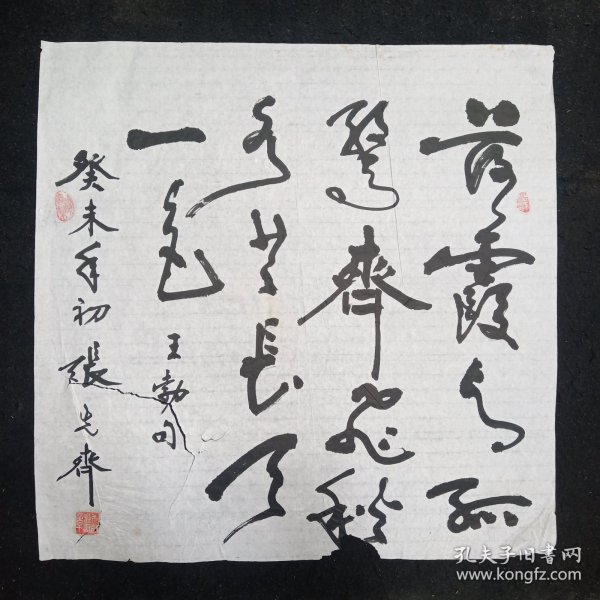 落霞与孤
鹜齊飛秋
水共長天
一色
王勃句
癸未年初張先齊
孔夫子旧書网
www.kongfz.com